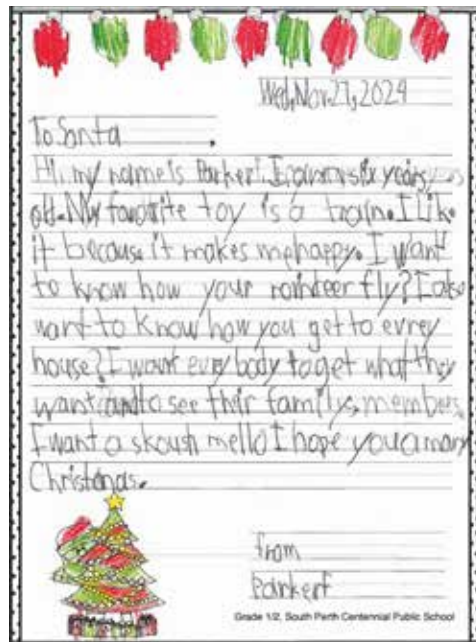 Wed, Nov. 27, 2024
To Santa
Hi, my name is Parker! I am six years
old. My favorite toy is a train. I like
it because it makes me happy. I want
to know how your reindeer fly? I also
want to know how you get to evrey
house? I want evry body to get what they
want and to see their family, members.
I want a skoush mello I hope you a mary
Christmas.
from
Parker f
Grade 1/2, South Perth Centennial Public School